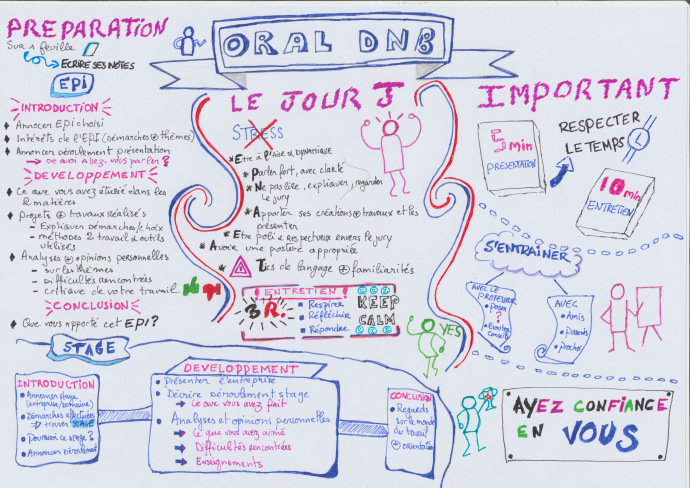 ORAL DNB
PREPARATION
Sur 1 feuille
ECRIRE SES NOTES
EPI
INTRODUCTION
Annocer EPI choisi
Intérêts de l'EPI (démarches + thèmes)
Annoncer déroulement présentation
→ De quoi allez-vous parler ?
DEVELOPPEMENT
Ce que vous avez étudié dans les
2 matières
Projets + travaux réalisés
- Expliquer démarches/choix
- méthodes 2 travail & outils
utilisés
Analyses + opinions personnelles
- sur les thèmes
- Difficultés rencontrées
- critique de votre travail
CONCLUSION
Que vous apporté cet EPI ?
LE JOUR J
STRESS
* Etre à l'aise & dynamique
* Parler fort, avec clarté
* Ne pas lire, expliquer, regarder
le jury
* Apporter ses créations + travaux et les
présenter
* Etre poli & respectueux envers le jury
* Avoir une posture appropriée
* Tics de langage + familiarités
ENTRETIEN
3 R!
Respirer
Réfléchir
Répondre
KEEP
CALM
YES
IMPORTANT
5 min
PRESENTATION
RESPECTER
LE TEMPS
10 min
ENTRETIEN
S'ENTRAINER
AVEC LE
PROFESSEUR
Poser
?
Ecouter
Conseils
AVEC
Amis
Parents
Proches
STAGE
INTRODUCTION
Annoncer stage
(entreprise/semaine)
Démarches effectuées
→ trouver STAGE
Pourquoi ce stage ?
Annoncer déroulement
DEVELOPPEMENT
Présenter l'entreprise
Décrire déroulement stage
→ Ce que vous avez fait
Analyses et opinions personnelles
→ Ce que vous avez aimé
→ Difficultés rencontrées
→ Enseignements
CONCLUSION
Regards
sur le monde
du travail
+ orientation
AYEZ CONFIANCE
EN VOUS